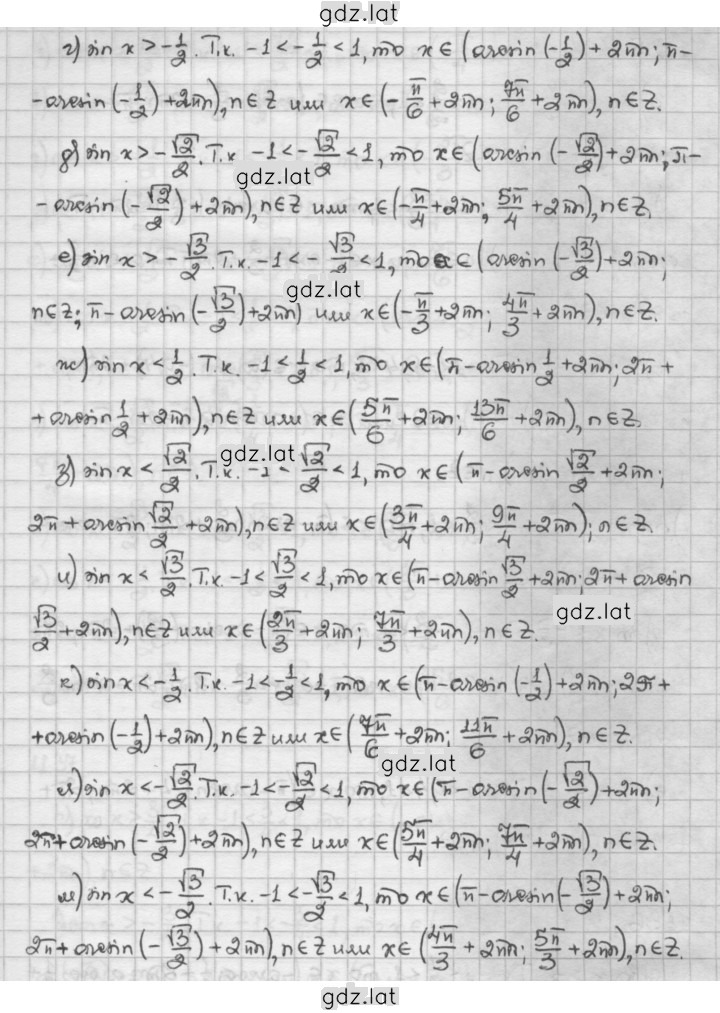 gdz.lat
г) sin x > -1/2. Т.к. -1 < -1/2 < 1, то x ∈ (arcsin (-1/2) + 2πn; π-
-arcsin (-1/2) + 2πn), n ∈ Z или x ∈ (-π/6 + 2πn; 7π/6 + 2πn), n ∈ Z.
д) sin x > -√2/2. Т.к. -1 < -√2/2 < 1, то x ∈ (arcsin (-√2/2) + 2πn; π-
gdz.lat
-arcsin (-√2/2) + 2πn), n ∈ Z или x ∈ (-π/4 + 2πn; 5π/4 + 2πn), n ∈ Z.
е) sin x > -√3/2. Т.к. -1 < -√3/2 < 1, то x ∈ (arcsin (-√3/2) + 2πn;
gdz.lat
n ∈ Z; π - arcsin (-√3/2) + 2πn) или x ∈ (-π/3 + 2πn; 4π/3 + 2πn), n ∈ Z.
ж) sin x < 1/2. Т.к. -1 < 1/2 < 1, то x ∈ (π - arcsin 1/2 + 2πn; 2π +
+ arcsin 1/2 + 2πn), n ∈ Z или x ∈ (5π/6 + 2πn; 13π/6 + 2πn), n ∈ Z.
gdz.lat
з) sin x < √2/2. Т.к. -1 < √2/2 < 1, то x ∈ (π - arcsin √2/2 + 2πn;
2π + arcsin √2/2 + 2πn), n ∈ Z или x ∈ (3π/4 + 2πn; 9π/4 + 2πn); n ∈ Z.
и) sin x < √3/2. Т.к. -1 < √3/2 < 1, то x ∈ (π - arcsin √3/2 + 2πn; 2π + arcsin
gdz.lat
√3/2 + 2πn), n ∈ Z или x ∈ (2π/3 + 2πn; 7π/3 + 2πn), n ∈ Z.
к) sin x < -1/2. Т.к. -1 < -1/2 < 1, то x ∈ (π - arcsin (-1/2) + 2πn; 2π +
+ arcsin (-1/2) + 2πn), n ∈ Z или x ∈ (7π/6 + 2πn; 11π/6 + 2πn), n ∈ Z.
gdz.lat
л) sin x < -√2/2. Т.к. -1 < -√2/2 < 1, то x ∈ (π - arcsin (-√2/2) + 2πn;
2π + arcsin (-√2/2) + 2πn), n ∈ Z или x ∈ (5π/4 + 2πn; 7π/4 + 2πn), n ∈ Z.
м) sin x < -√3/2. Т.к. -1 < -√3/2 < 1, то x ∈ (π - arcsin (-√3/2) + 2πn;
2π + arcsin (-√3/2) + 2πn), n ∈ Z или x ∈ (4π/3 + 2πn; 5π/3 + 2πn), n ∈ Z.
gdz.lat